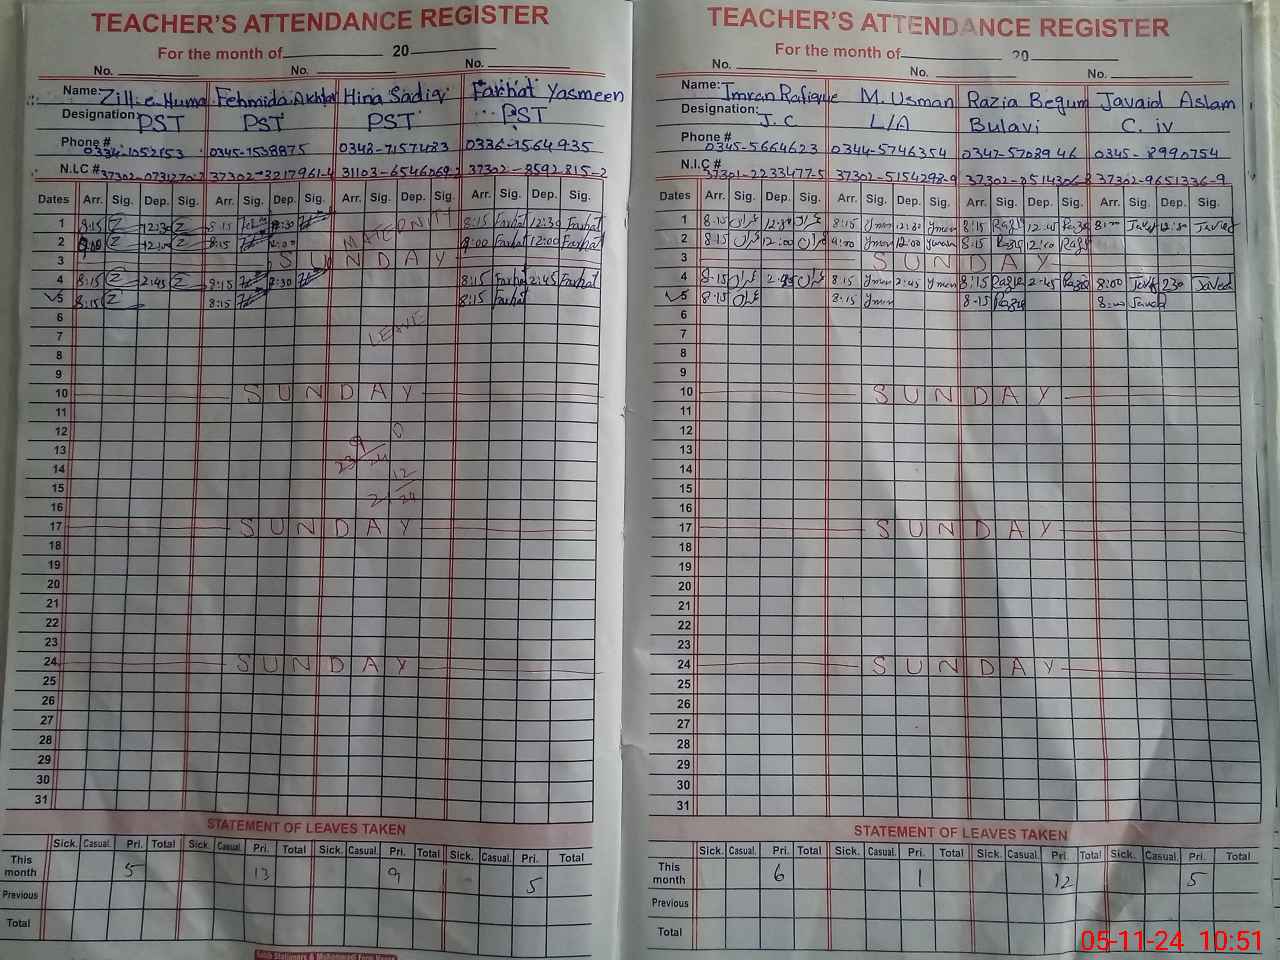 TEACHER'S ATTENDANCE REGISTER
For the month of 20
No. No. No.
Name: Zill-e-Huma Fehmida Akhtar Hina Sadiq Farhat Yasmeen
Designation: PST PST PST PST
Phone # 0334-1052153 0345-1538875 0348-7157483 0336-1564935
N.I.C # 37302-3217961-4 37302-8592815-2
Dates Arr. Sig. Dep. Sig. Arr. Sig. Dep. Sig. Arr. Sig. Dep. Sig. Arr. Sig. Dep. Sig.
1 8:15 Z 12:30 Z 8:15 12:30 MATERNITY 8:15 Farhat 12:30 Farhat
2 Z Z 8:15 12:00 8:00 Farhat 12:00 Farhat
3 SUNDAY
4 8:15 Z 2:45 Z 8:15 2:30 8:15 Farhat 2:45 Farhat
5 8:15 Z 8:15 8:15 Farhat
6
7 LEAVE
8
9
10 SUNDAY
11
12
13 23 9 24
14
15 2 12 24
16
17 SUNDAY
18
19
20
21
22
23
24 SUNDAY
25
26
27
28
29
30
31
STATEMENT OF LEAVES TAKEN
Sick. Casual. Pri. Total Sick. Casual. Pri. Total Sick. Casual. Pri. Total Sick. Casual. Pri. Total
This month 5 13 9 5
Previous
Total
TEACHER'S ATTENDANCE REGISTER
For the month of 20
No. No. No.
Name: Imran Rafique M. Usman Razia Begum Javaid Aslam
Designation: J.C L/A Bulavi C. iv
Phone # 0345-5664623 0344-5746354 0347-5708946 0345-8990754
N.I.C # 37301-2233477-5 37302-5154298-9 37302-9651336-9
Dates Arr. Sig. Dep. Sig. Arr. Sig. Dep. Sig. Arr. Sig. Dep. Sig. Arr. Sig. Dep. Sig.
1 8:15 12:30 8:15 12:30 8:15 12:45 8:00 Javed 12:30 Javed
2 8:15 12:00 12:00 8:15 12:10
3 SUNDAY
4 8:15 2:45 8:15 2:45 8:15 2:45 8:00 230 Javed
5 8:15 8:15 8:15 8:00 Javed
6
7
8
9
10 SUNDAY
11
12
13
14
15
16
17 SUNDAY
18
19
20
21
22
23
24 SUNDAY
25
26
27
28
29
30
31
STATEMENT OF LEAVES TAKEN
Sick. Casual. Pri. Total Sick. Casual. Pri. Total Sick. Casual. Pri. Total Sick. Casual. Pri. Total
This month 6 1 12 5
Previous
Total
05-11-24 10:51